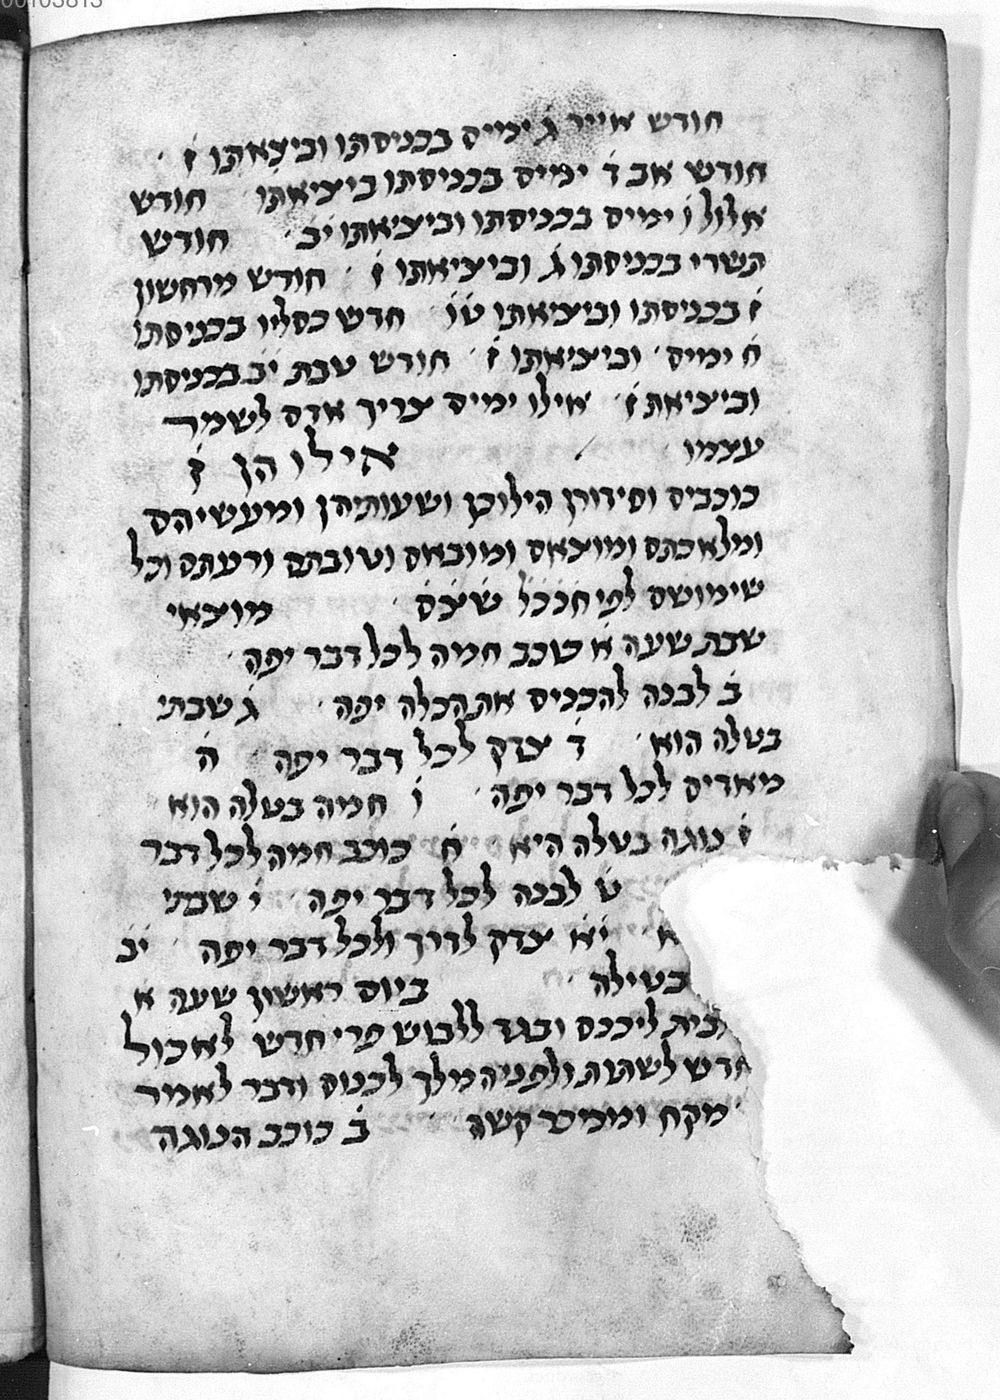 00103813
חודש אייר ג̇ ימיים בכניסתו וביציאתו ז̇
חודש אב ד̇ ימים בכניסתו ביציאתו חודש
אלול ו̇ ימים בכניסתו וביציאתו י̇ב̇ חודש
תשרי בכניסתו ג̇ וביציאתו ז̇ חודש מרחשון
ז̇ בכניסתו וביציאתו ט̇ו̇ חדש כסליו בכניסתו
ח̇ ימים וביציאתו ז̇ חודש טבת י̇ב̇ בכניסתו
וביציאת ז̇ אילו ימים צריך אדם לשמר
עצמו אילו הן ז̇
כוכבים וסידורן הילוכן ושעותיהן ומעשיהם
ומלאכתם ומוצאם ומובאם וטובתם ורעתם וכל
שימושם לפי ח̇כ̇כ̇ל̇ ש̇צ̇ם̇ מוצאי
שבת שעה א̇ כוכב חמה לכל דבר יפה
ב̇ לבנה להכניס את הכלה יפה ג̇ שבתי
בטלה הוא ד̇ צדק לכל דבר יפה ה̇
מאדים לכל דבר יפה ו̇ חמה בטלה הוא
ז̇ נוגה בטלה היא ח̇ כוכב חמה לכל דבר
ט̇ לבנה לכל דבר יפה י̇ שבתי
א י̇א̇ צדק לדיך ולכל דבר יפה י̇ב̇
בטילה ביום ראשון שעה א̇
לבית ליכנס ובגד ללבוש פרי חדש לאכול
חדש לשתות ולפני המלך לכנוס ודבר לאמר
מקח וממכר קשה ב̇ כוכב הנוגה